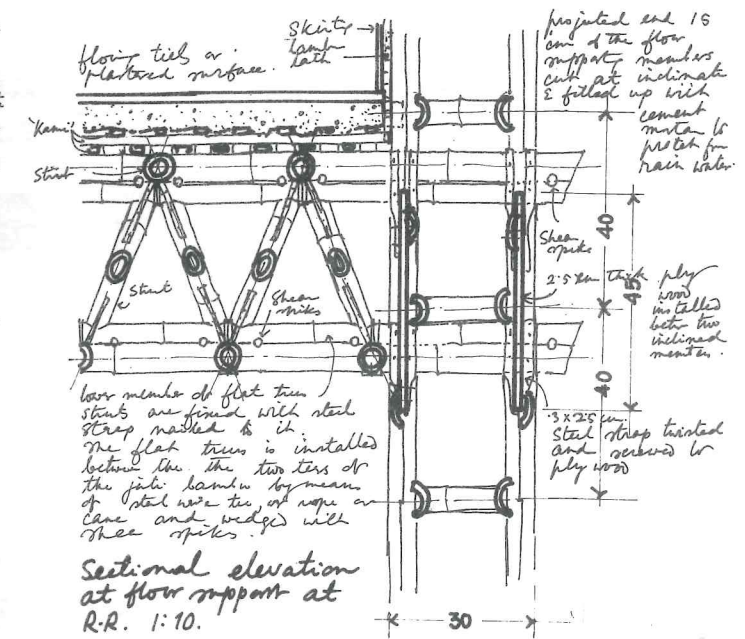 Skirtg
bambu
lath
flowing tiels or
plastered surface.
projected end 15
cm of the flow
supportg members
cut at inclinate
& filled up with
cement
mortar to
pretch for
rain water.
'Kami'
Strut
Strut
Shear
spikes
Shear
spikes
40
45
40
2.5 cm thick ply
wood
installed
betn two
inclined
members.
.3 x 2.5 cm
Steel strap twisted
and screwed to
ply wood
lower member of flat truss
struts are fixed with steel
strap nailed to it.
The flat truss is installed
between the the two ties of
the jati bambu by means
of steel wire tie, or rope or
cane and wedged with
shea spikes.
Sectional elevation
at flow support at
R.R. 1:10.
30